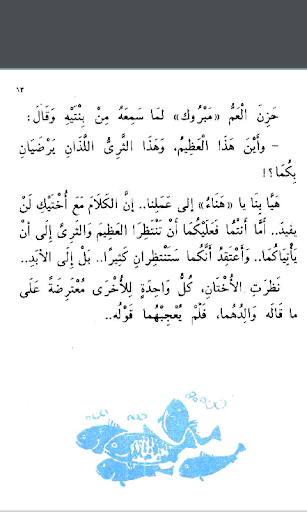 ١٣
حَزِنَ الْعَمُّ «مَبْرُوك» لمَا سَمِعَهُ مِنْ بِنْتَيْهِ وَقَالَ:
- وأَيْنَ هَذَا الْعَظِيمُ، وَهَذَا الثَّرِىُّ اللَّذَانِ يَرْضَيَانِ
بِكُمَا؟!
هَيَّا بِنَا يا «هَنَاءُ» إلى عَمَلِنا.. إنَّ الْكَلاَمَ مَع أُخْتَيْكِ لَنْ
يفيدَ.. أمَّا أَنتُما فَعَلَيْكُمَا أَنْ تَنْتَظِرَا العَظِيمَ والثَرِىَّ إِلَى أنْ
يَأْتِيَاكُمَا.. وَأَعْتَقِدُ أَنَّكُما سَتَنْتَظِرانِ كَثِيرًا.. بَلْ إِلَى الأبَدِ..
نَظَرَتِ الأُخْتَانِ، كُلُّ وَاحِدَةٍ لِلْأُخْرَى مُعْتَرِضَةً عَلَى
مَا قَالَه وَالِدُهُما، فَلَمْ يُعْجِبْهُما قَوْلُه..